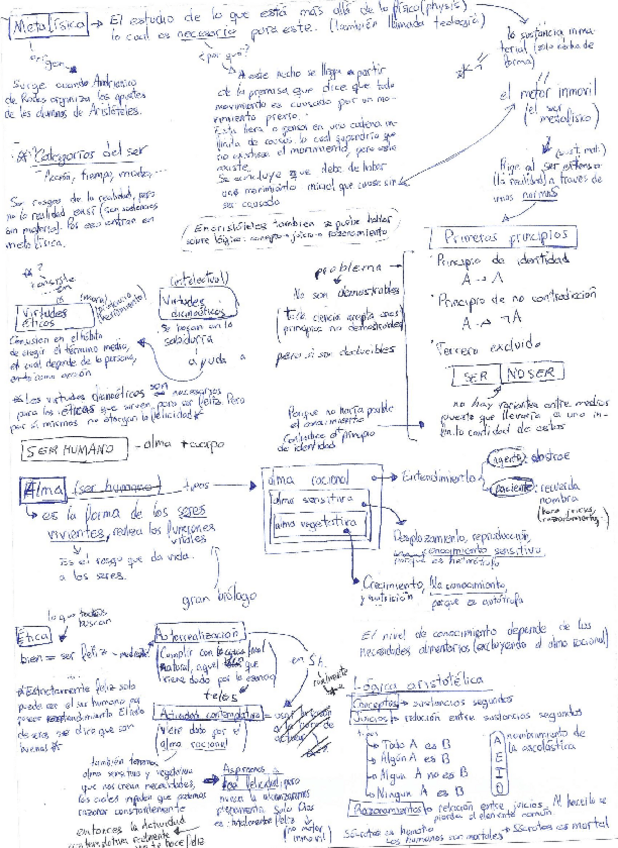 Metafísica → El estudio de lo que está más allá de lo físico (physis)
lo cual es necesario para este. (también llamada teología)
origen
¿por qué?
Surge cuando Andrónico
de Rodas organiza los apuntes
de los alumnos de Aristóteles.
A este hecho se llega a partir
de la premisa que dice que todo
movimiento es causado por un mo-
vimiento previo.
Esto lleva a pensar en una cadena in-
finita de causas, lo cual supondría que
no existiera el movimiento, pero este
existe.
Se concluye que debe de haber
un movimiento inicial que cause sin
ser causado
la sustancia inma-
terial (solo consta de
forma)
el motor inmóvil
(el ser
metafísico)
Rige al ser extenso
(la realidad) a través de
unas normas
* Categorías del ser
Acción, tiempo, modo, ...
Son rasgos de la realidad, pero
no la realidad en sí
metafísica.
En Aristóteles también se puede hablar
sobre lógica: concepto + juicio + razonamiento
Primeros principios
· Principio de identidad
A → A
· Principio de no contradicción
A → ¬A
· Tercero excluido
SER NO SER
no hay variantes entre medias
puesto que llevaría a una in-
finita cantidad de estas
problema
No son demostrables
Toda ciencia acepta unos
principios no demostrables
pero sí son deducibles
Porque no haría posible
el conocimiento
Contradice al principio
de identidad
consiste
en
Virtudes
éticas
(intelectual)
Virtudes
dianoéticas
Se basan en la
sabiduría
ayuda a
Consisten en el hábito
de elegir el término medio,
el cual depende de la persona,
Las virtudes dianoéticas son necesarias
para las éticas que sirven para ser feliz. Pero
por sí mismas no otorgan la felicidad
SER HUMANO - alma + cuerpo
Alma (ser humano) tipos
→ es la forma de los seres
vivientes, realiza las funciones
vitales
Es el rasgo que da vida
a los seres.
gran biólogo
alma racional
alma sensitiva
alma vegetativa
Entendimiento
agente: abstrae
paciente: recuerda
nombra
(hace juicios,
razonamientos)
Desplazamiento, reproducción,
conocimiento sensitivo
porque es heterótrofo
Crecimiento, No conocimiento,
y nutrición porque es autótrofa
El nivel de conocimiento depende de las
necesidades alimentarias (excluyendo el alma racional)
lo que todos
buscan
Ética
bien = ser feliz
Autorrealización
Cumplir con la
natural, aquel que
viene dado por la esencia
telos
Actividad contemplativa
(viene dado por el
alma racional)
en sí.
Estrictamente feliz solo
puede ser el ser humano
buenas
también tenemos
alma sensitiva y vegetativa
que nos crean necesidades,
las cuales impiden que podamos
razonar constantemente
entonces la Actividad
Aspiramos a
esa felicidad, pero
nunca la alcanzaremos
plenamente. Solo Dios
es totalmente feliz
(no motor
inmóvil)
Lógica aristotélica
Conceptos → sustancias segundas
Juicios → relación entre sustancias segundas
tipos
→ Todo A es B
→ Algún A es B
→ Algún A no es B
→ Ningún A es B
A
E
I
O
nombramiento de
la escolástica
Razonamientos → relación entre juicios. Al hacerlo se
pierde el elemento común.
Sócrates es humano
Los humanos son mortales → Sócrates es mortal